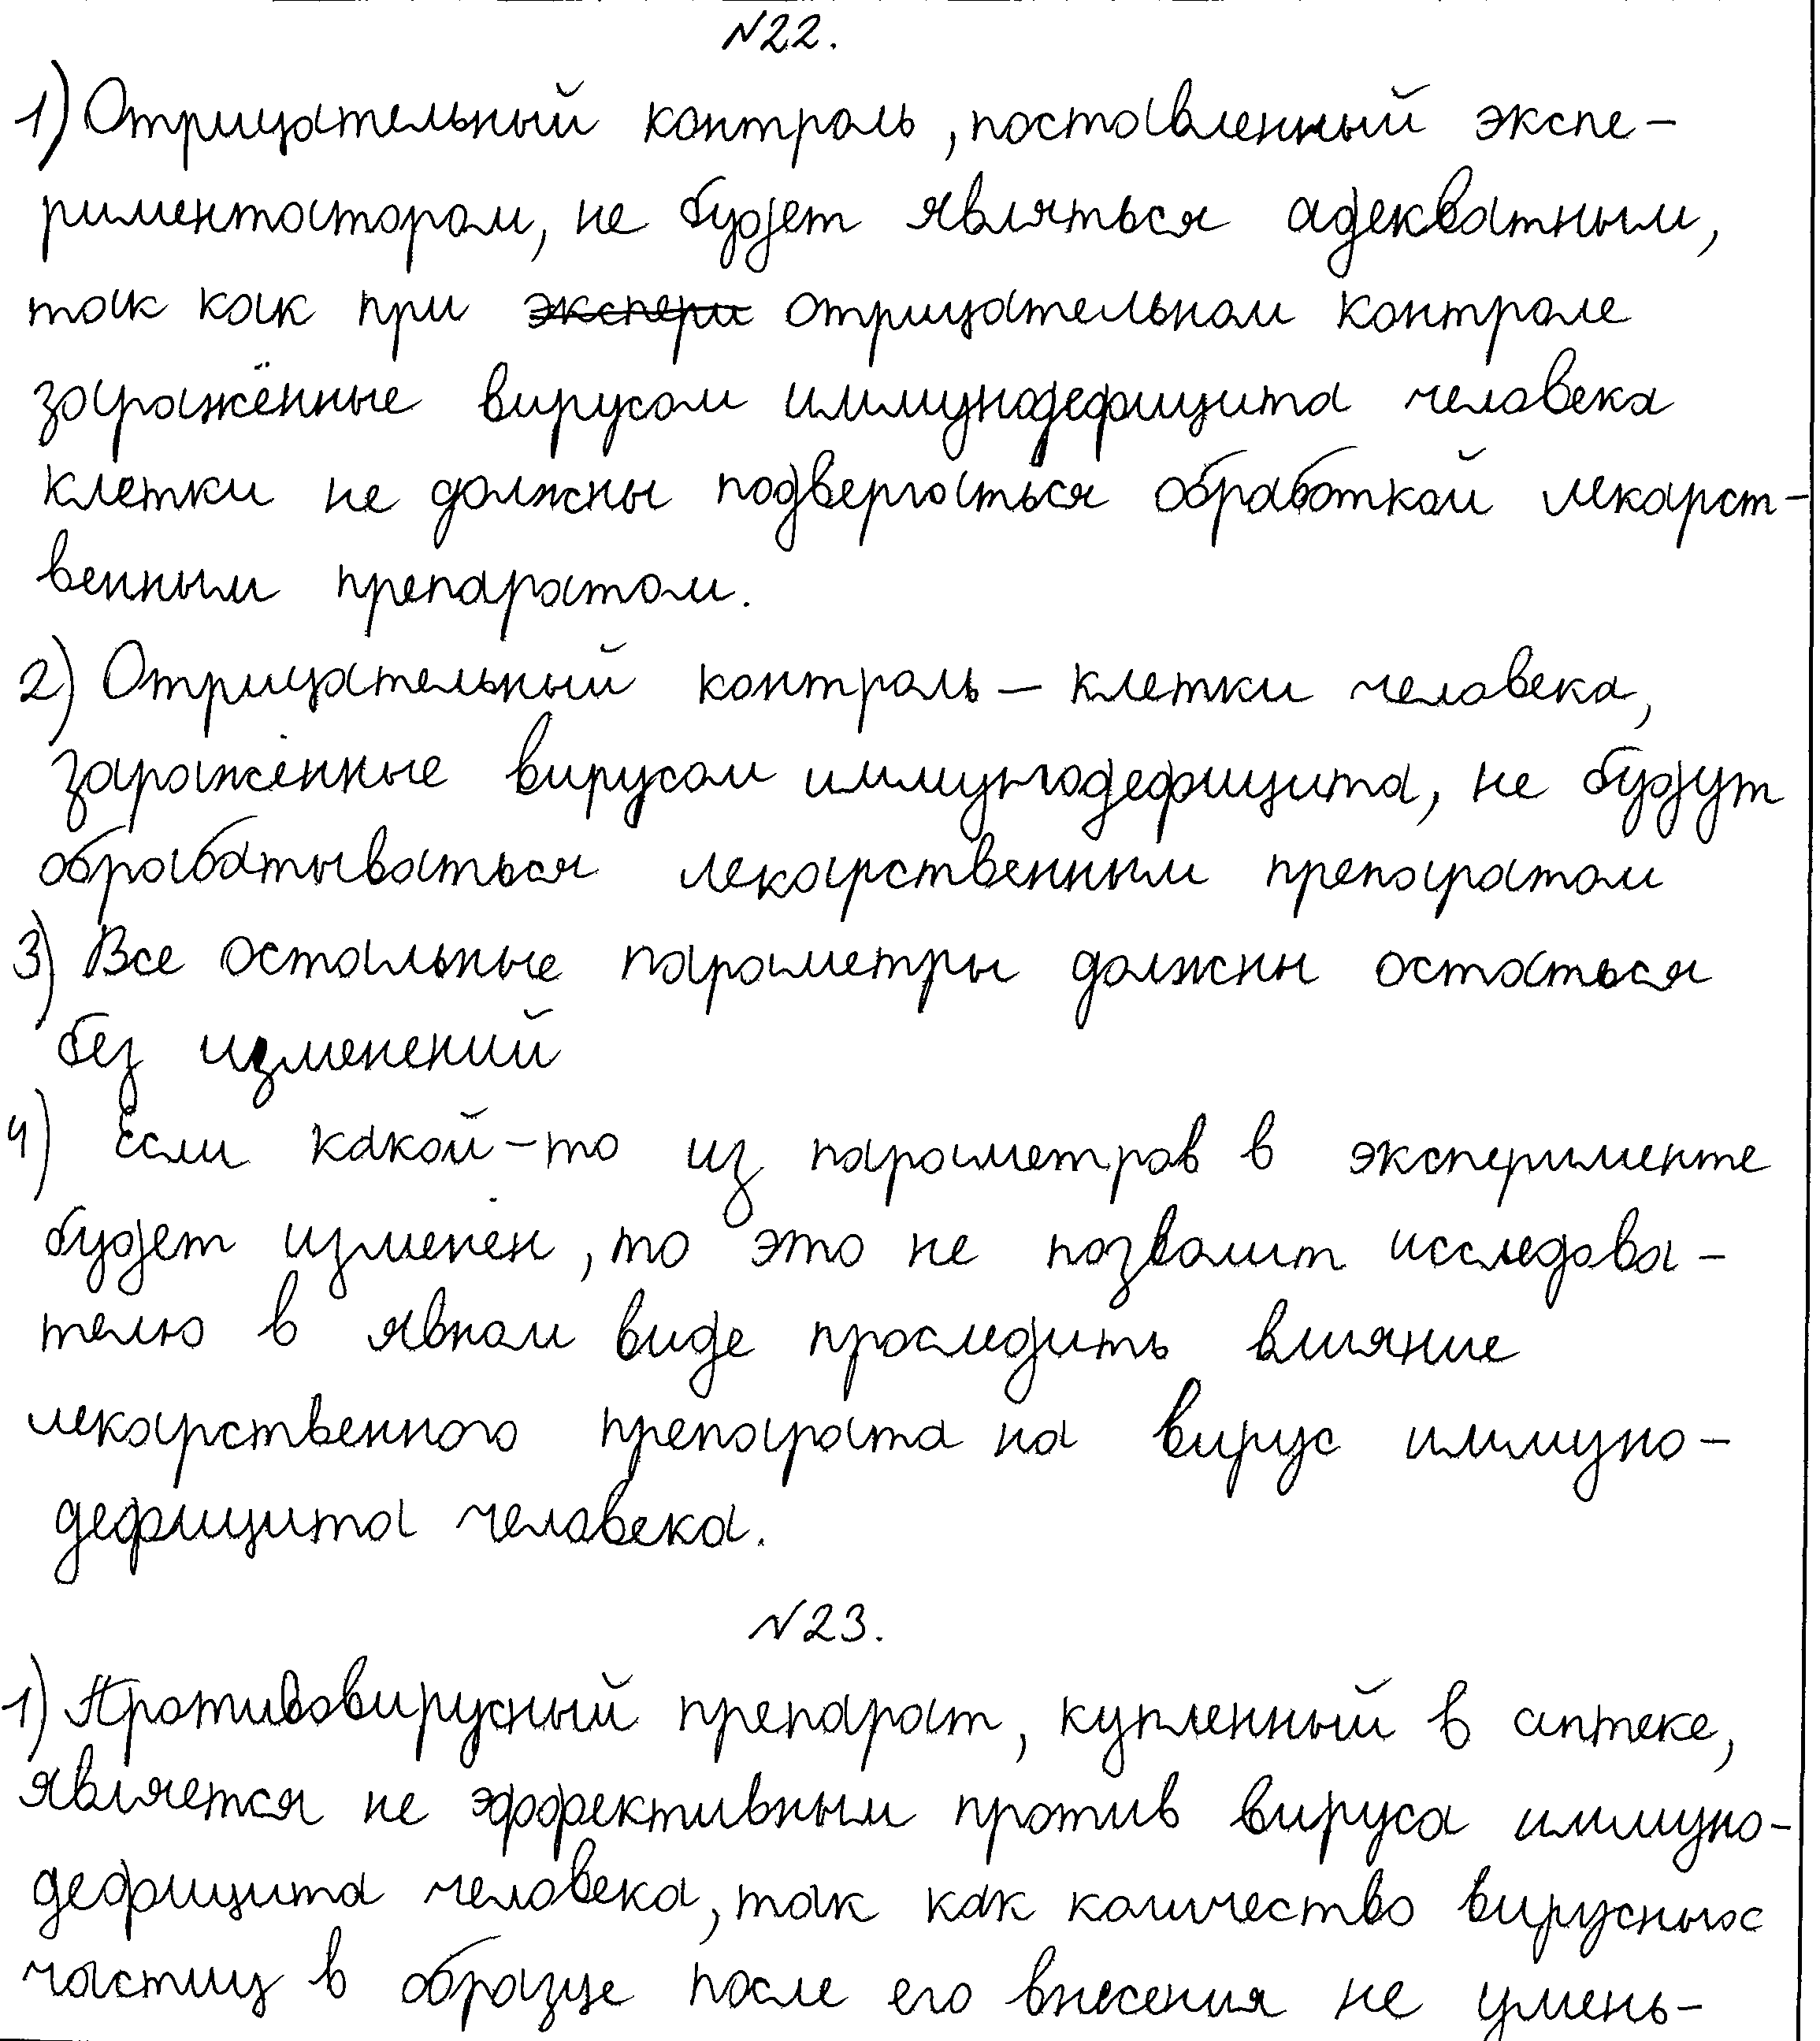 №22.
1) Отрицательный контроль, поставленный экспе-
риментатором, не будет являться адекватным,
так как при ~~экспери~~ отрицательном контроле
заражённые вирусом иммунодефицита человека
клетки не должны подвергаться обработкой лекарст-
венным препаратом.
2) Отрицательный контроль – клетки человека,
заражённые вирусом иммунодефицита, не будут
обрабатываться лекарственным препаратом
3) Все остальные параметры должны остаться
без изменений
4) Если какой-то из параметров в эксперименте
будет изменён, то это не позволит исследова-
телю в явном виде проследить влияние
лекарственного препарата на вирус иммуно-
дефицита человека.
№23.
1) Противовирусный препарат, купленный в аптеке,
является не эффективным против вируса иммуно-
дефицита человека, так как количество вирусных
частиц в образце после его внесения не умень-